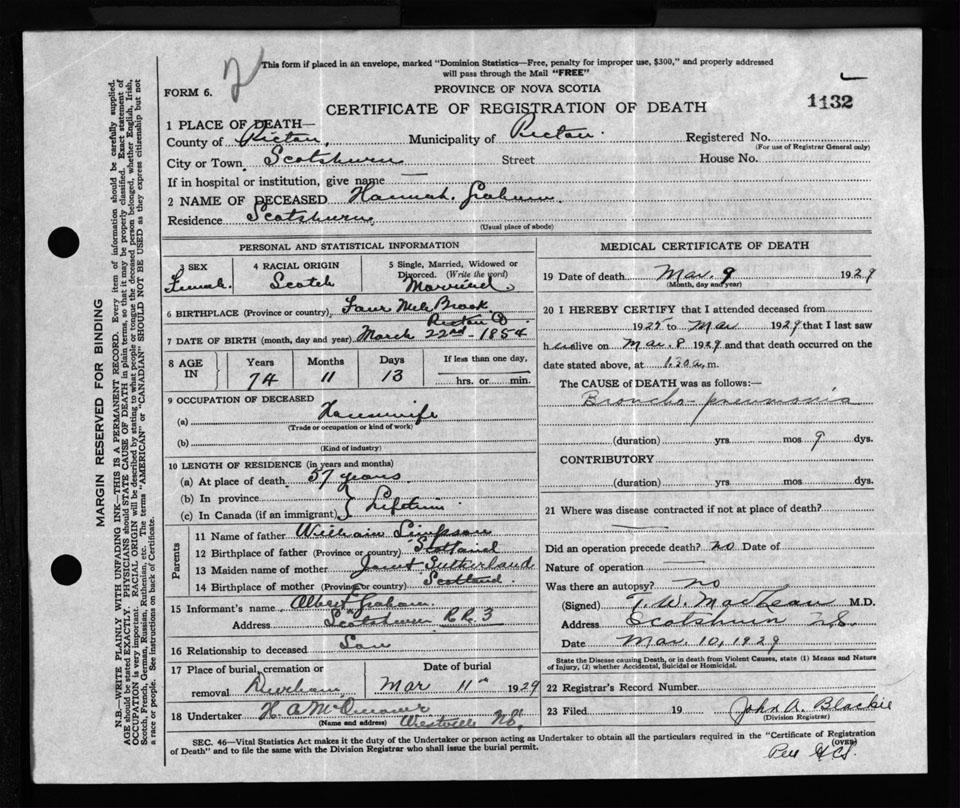 2
This form if placed in an envelope, marked "Dominion Statistics—Free, penalty for improper use, $300," and properly addressed
will pass through the Mail "FREE"
FORM 6.
PROVINCE OF NOVA SCOTIA
CERTIFICATE OF REGISTRATION OF DEATH
1132
1 PLACE OF DEATH—
County of Pictou, Municipality of Pictou. Registered No.
(For use of Registrar General only)
City or Town Scotsburn Street House No.
If in hospital or institution, give name —
2 NAME OF DECEASED Hannah Graham.
Residence Scotsburn
(Usual place of abode)
PERSONAL AND STATISTICAL INFORMATION
3 SEX Female
4 RACIAL ORIGIN Scotch
5 Single, Married, Widowed or
Divorced. (Write the word)
Married
6 BIRTHPLACE (Province or country) Four Mile Brook
Pictou Co
7 DATE OF BIRTH (month, day and year) March 22nd - 1854
8 AGE IN
Years Months Days If less than one day,
74 11 13 hrs. or min.
9 OCCUPATION OF DECEASED
(a) Housewife
(Trade or occupation or kind of work)
(b)
(Kind of industry)
10 LENGTH OF RESIDENCE (in years and months)
(a) At place of death 57 years
(b) In province
(c) In Canada (if an immigrant) } Lifetime
Parents
11 Name of father William Simpson
12 Birthplace of father (Province or country) Scotland
13 Maiden name of mother Janet Sutherland
14 Birthplace of mother (Province or country) Scotland.
15 Informant's name Albert Graham.
Address Scotsburn R.R. 3
16 Relationship to deceased Son
17 Place of burial, cremation or
removal Durham
Date of burial
Mar 11th 1929
18 Undertaker H. A.
(Name and address) Westville N.S.
MEDICAL CERTIFICATE OF DEATH
19 Date of death Mar. 9 1929
(Month, day and year)
20 I HEREBY CERTIFY that I attended deceased from
1925 to Mar 1929 that I last saw
her alive on Mar. 8 1929 and that death occurred on the
date stated above, at 1.30 a.m.
The CAUSE of DEATH was as follows:—
Broncho-pneumonia
(duration) yrs mos 9 dys.
CONTRIBUTORY
(duration) yrs. mos. dys.
21 Where was disease contracted if not at place of death?
—
Did an operation precede death? no Date of
Nature of operation —
Was there an autopsy? no
(Signed) T. W. MacLean M.D.
Address Scotsburn N.S.
Date Mar. 10, 1929
State the Disease causing Death, or in death from Violent Causes, state (1) Means and Nature
of Injury, (2) whether Accidental, Suicidal or Homicidal.
22 Registrar's Record Number
23 Filed 19 John A. Blackie
(Division Registrar)
SEC. 46—Vital Statistics Act makes it the duty of the Undertaker or person acting as Undertaker to obtain all the particulars required in the "Certificate of Registration
of Death" and to file the same with the Division Registrar who shall issue the burial permit.
(OVER)
Per
MARGIN RESERVED FOR BINDING
N.B.—WRITE PLAINLY WITH UNFADING INK—THIS IS A PERMANENT RECORD. Every item of information should be carefully supplied.
AGE should be stated EXACTLY. PHYSICIANS should STATE CAUSE OF DEATH in plain terms, so that it may be properly classified. Exact statement of
OCCUPATION is very important. RACIAL ORIGIN will be described by stating to what people or tongue the deceased person belonged, whether English, Irish,
Scotch, French, German, Russian, Ruthenian, etc. The terms "AMERICAN" or "CANADIAN" SHOULD NOT BE USED as they express citizenship but not
a race or people. See instructions on back of Certificate.